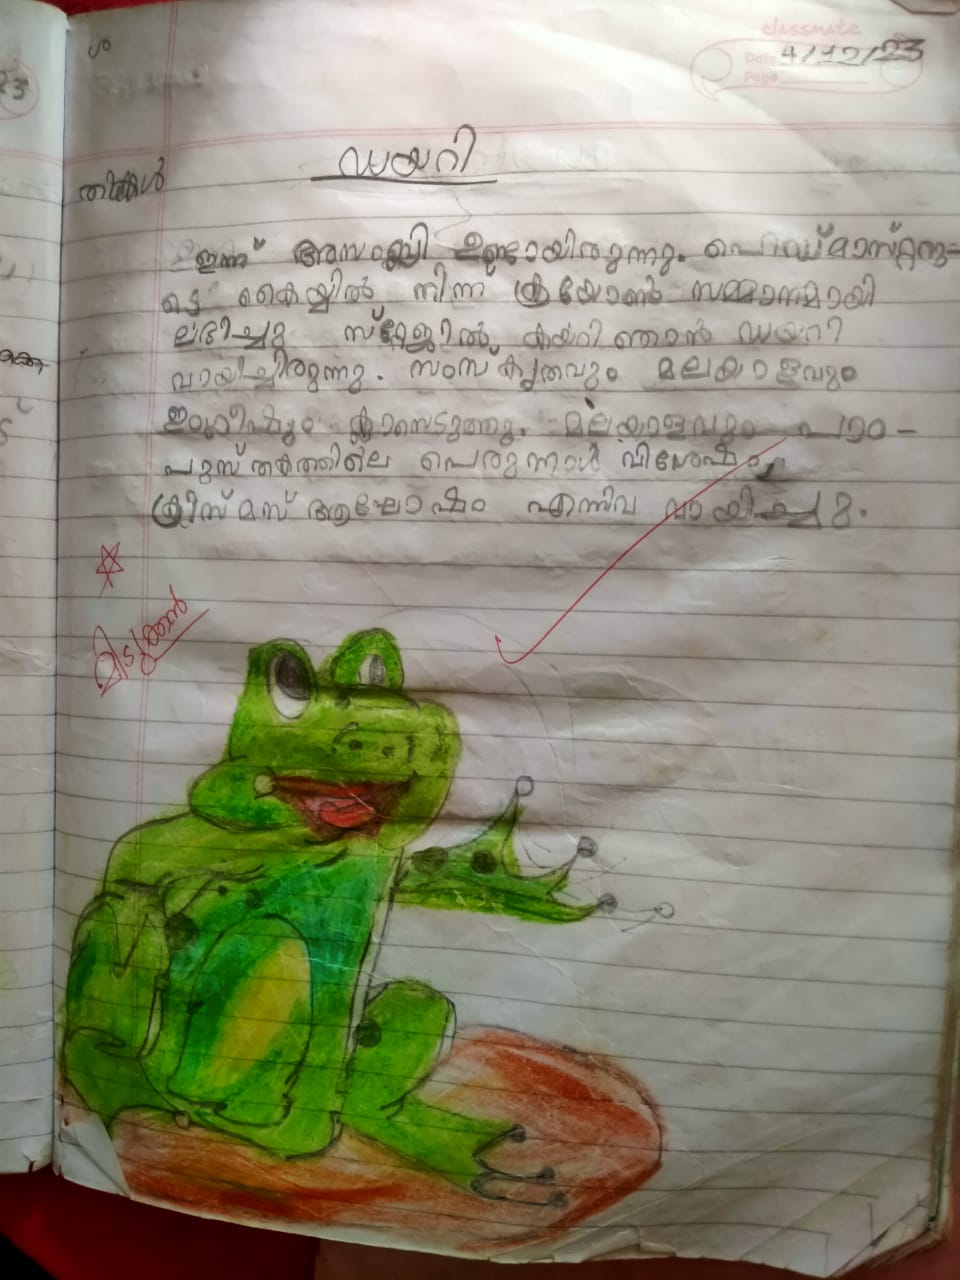 classmate
Date 4/12/23
Page
ഡയറി
തിങ്കൾ
ഇന്ന് അസംബ്ലി ഉണ്ടായിരുന്നു. ഹെഡ്മാസ്റ്ററു-
ടെ കൈയ്യിൽ നിന്ന് ക്രയോൺ സമ്മാനമായി
ലഭിച്ചു സ്റ്റേജിൽ കയറി ഞാൻ ഡയറി
വായിച്ചിരുന്നു. സംസ്കൃതവും മലയാളവും
ഇംഗ്ലീഷും ക്ലാസെടുത്തു. മലയാളവും പാഠ-
പുസ്തകത്തിലെ പെരുന്നാൾ വിശേഷം,
ക്രിസ്മസ് ആഘോഷം എന്നിവ വായിച്ചു.
മിടുക്കൻ